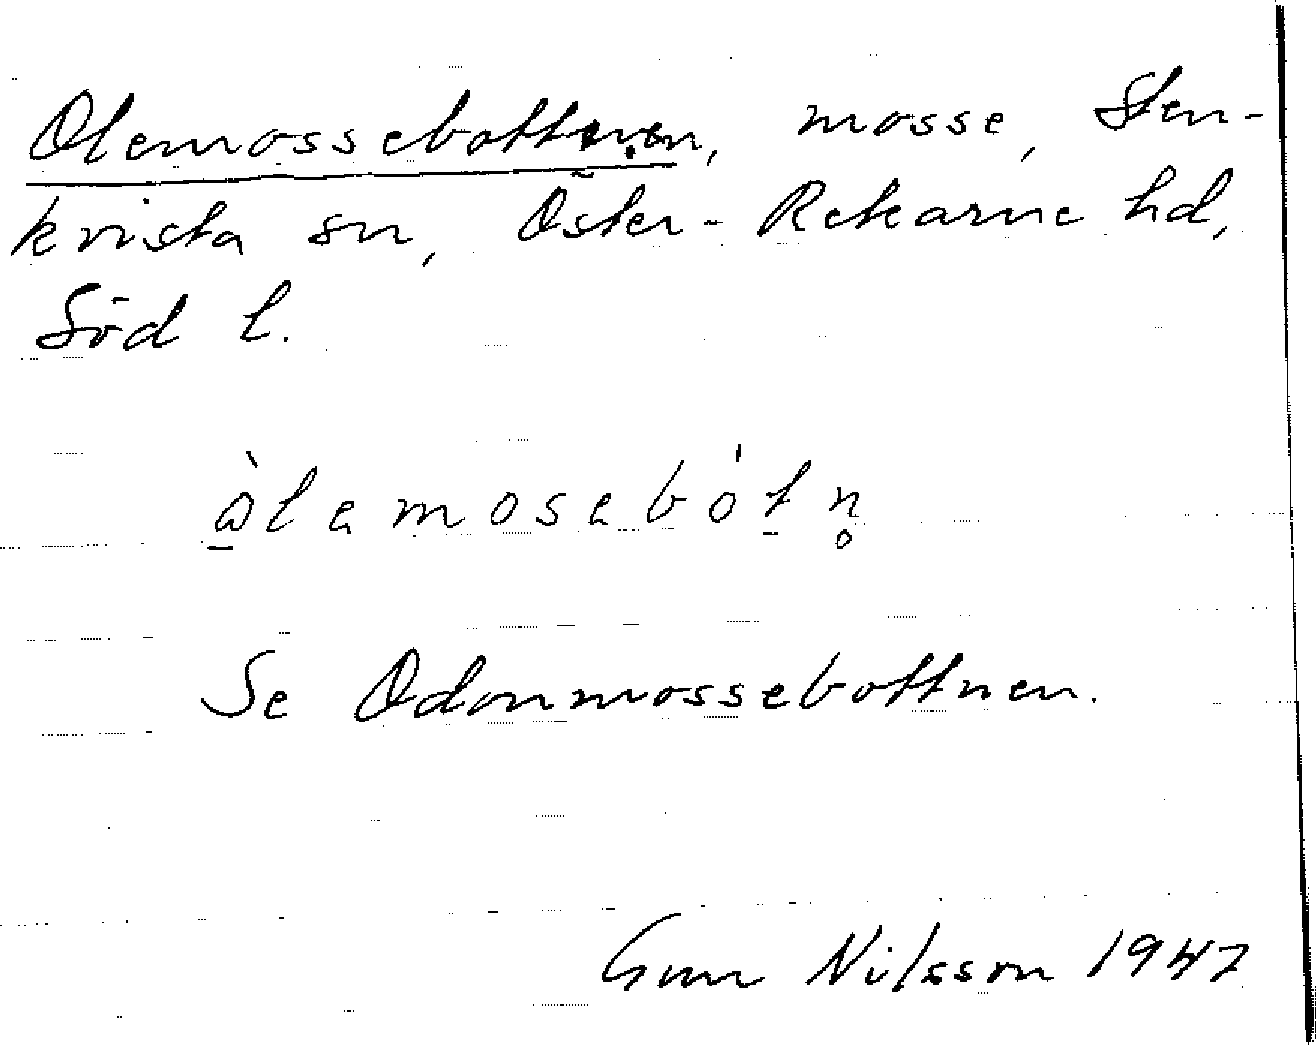 Olemossebottnen, mosse, Sten-
kvista sn, Öster-Rekarne hd,
Söd l.
ò̱lemosebót̠n̥
Se Odonmossebottnen.
Gun Nilsson 1947